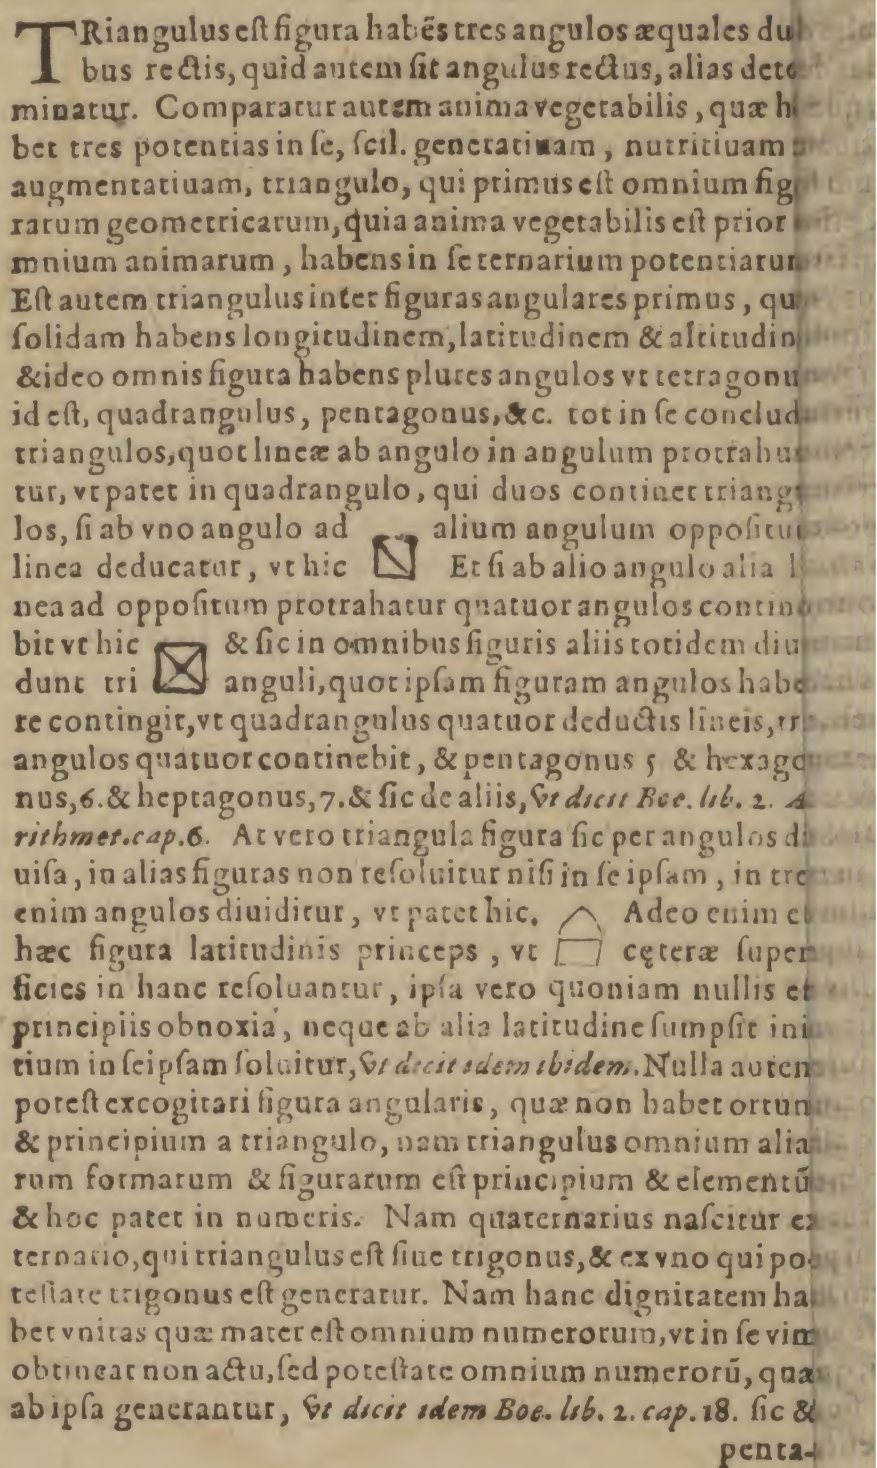 TRiangulus eſt figura habēs tres angulos æquales du
bus rectis, quid autem ſit angulus rectus, alias dete
minatur. Comparatur autem anima vegetabilis, quæ h
bet tres potentias in ſe, ſcil. generatiuam, nutritiuam
augmentatiuam, triangulo, qui primus eſt omnium fig
rarum geometricarum, quia anima vegetabilis eſt prior
mnium animarum, habens in ſe ternarium potentiarum
Eſt autem triangulus inter figuras angulares primus, qu
ſolidam habens longitudinem, latitudinem & altitudin
& ideo omnis figura habens plures angulos vt tetragonu
id eſt, quadrangulus, pentagonus, &c. tot in ſe conclud
triangulos, quot lineæ ab angulo in angulum protrahu
tur, vt patet in quadrangulo, qui duos continet triang
los, ſi ab vno angulo ad alium angulum oppoſitu
linea deducatur, vt hic Et ſi ab alio angulo alia l
nea ad oppoſitum protrahatur quatuor angulos contin
bit vt hic & ſic in omnibus figuris aliis totidem diui
dunt tri anguli, quot ipſam figuram angulos habe
re contingit, vt quadrangulus quatuor deductis lineis, tri
angulos quatuor continebit, & pentagonus 5 & hexago
nus, 6. & heptagonus, 7. & ſic de aliis, vt dicit Boe. lib. 2. A
rithmet. cap. 6. At vero triangula figura ſic per angulos di
uiſa, in alias figuras non reſoluitur niſi in ſe ipſam, in tre
enim angulos diuiditur, vt patet hic. Adeo enim e
hæc figura latitudinis princeps, vt cęteræ ſuper
ficies in hanc reſoluantur, ipſa vero quoniam nullis e
principiis obnoxia, neque ab alia latitudine ſumpſit ini
tium in ſeipſam ſoluitur, vt dicit idem ibidem. Nulla autem
poteſt excogitari figura angularis, quæ non habet ortum
& principium a triangulo, nam triangulus omnium alia
rum formarum & figurarum eſt principium & elementū
& hoc patet in numeris. Nam quaternarius naſcitur ex
ternario, qui triangulus eſt ſiue trigonus, & ex vno qui po
teſtate trigonus eſt generatur. Nam hanc dignitatem ha
bet vnitas quæ mater eſt omnium numerorum, vt in ſe vim
obtineat non actu, ſed poteſtate omnium numerorū, quæ
ab ipſa generantur, vt dicit idem Boe. lib. 2. cap. 18. ſic &
penta-